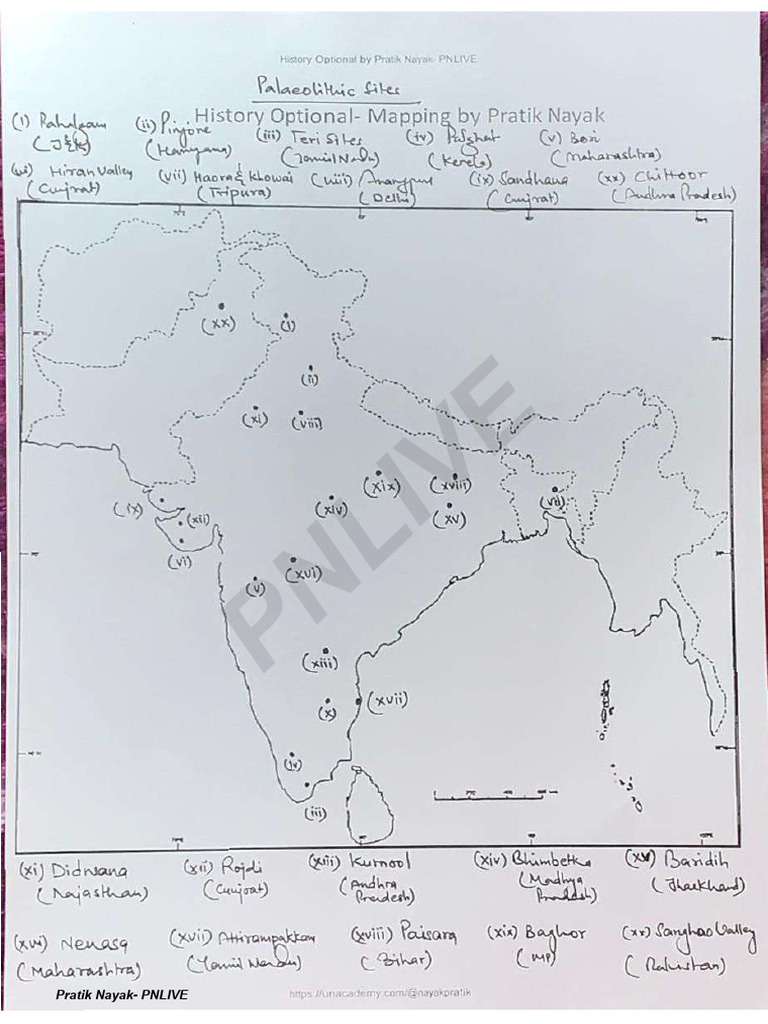 History Optional by Pratik Nayak- PNLIVE
Palaeolithic Sites
History Optional- Mapping by Pratik Nayak
(i) Pahalgam (ii) Pinjore (iii) Teri Sites (iv) Palghat (v) Bori
(J&K) (Haryana) (Tamil Nadu) (Kerela) (Maharashtra)
(vi) Hiran Valley (vii) Haora & Khowai (viii) Anangpur (ix) Sandhana (xx) Chittoor
(Gujrat) (Tripura) (Delhi) (Gujrat) (Andhra Pradesh)
(xx) (i)
(ii)
(xi) (viii)
(xix) (xviii)
(ix) (xii) (xiv) (xv) (vii)
(vi)
(v) (xvi)
PNLIVE
(xiii)
(x) (xvii)
(iv)
(iii)
(xi) Didwana (xii) Rojdi (xiii) Kurnool (xiv) Bhimbetka (xv) Baridih
(Rajasthan) (Gujrat) (Andhra Pradesh) (Madhya Pradesh) (Jharkhand)
(xvi) Nevasa (xvii) Attirampakkam (xviii) Paisara (xix) Baghor (xx) Sanghao Valley
(Maharashtra) (Tamil Nandu) (Bihar) (MP) (Pakistan)
Pratik Nayak- PNLIVE
https://unacademy.com/@nayakpratik